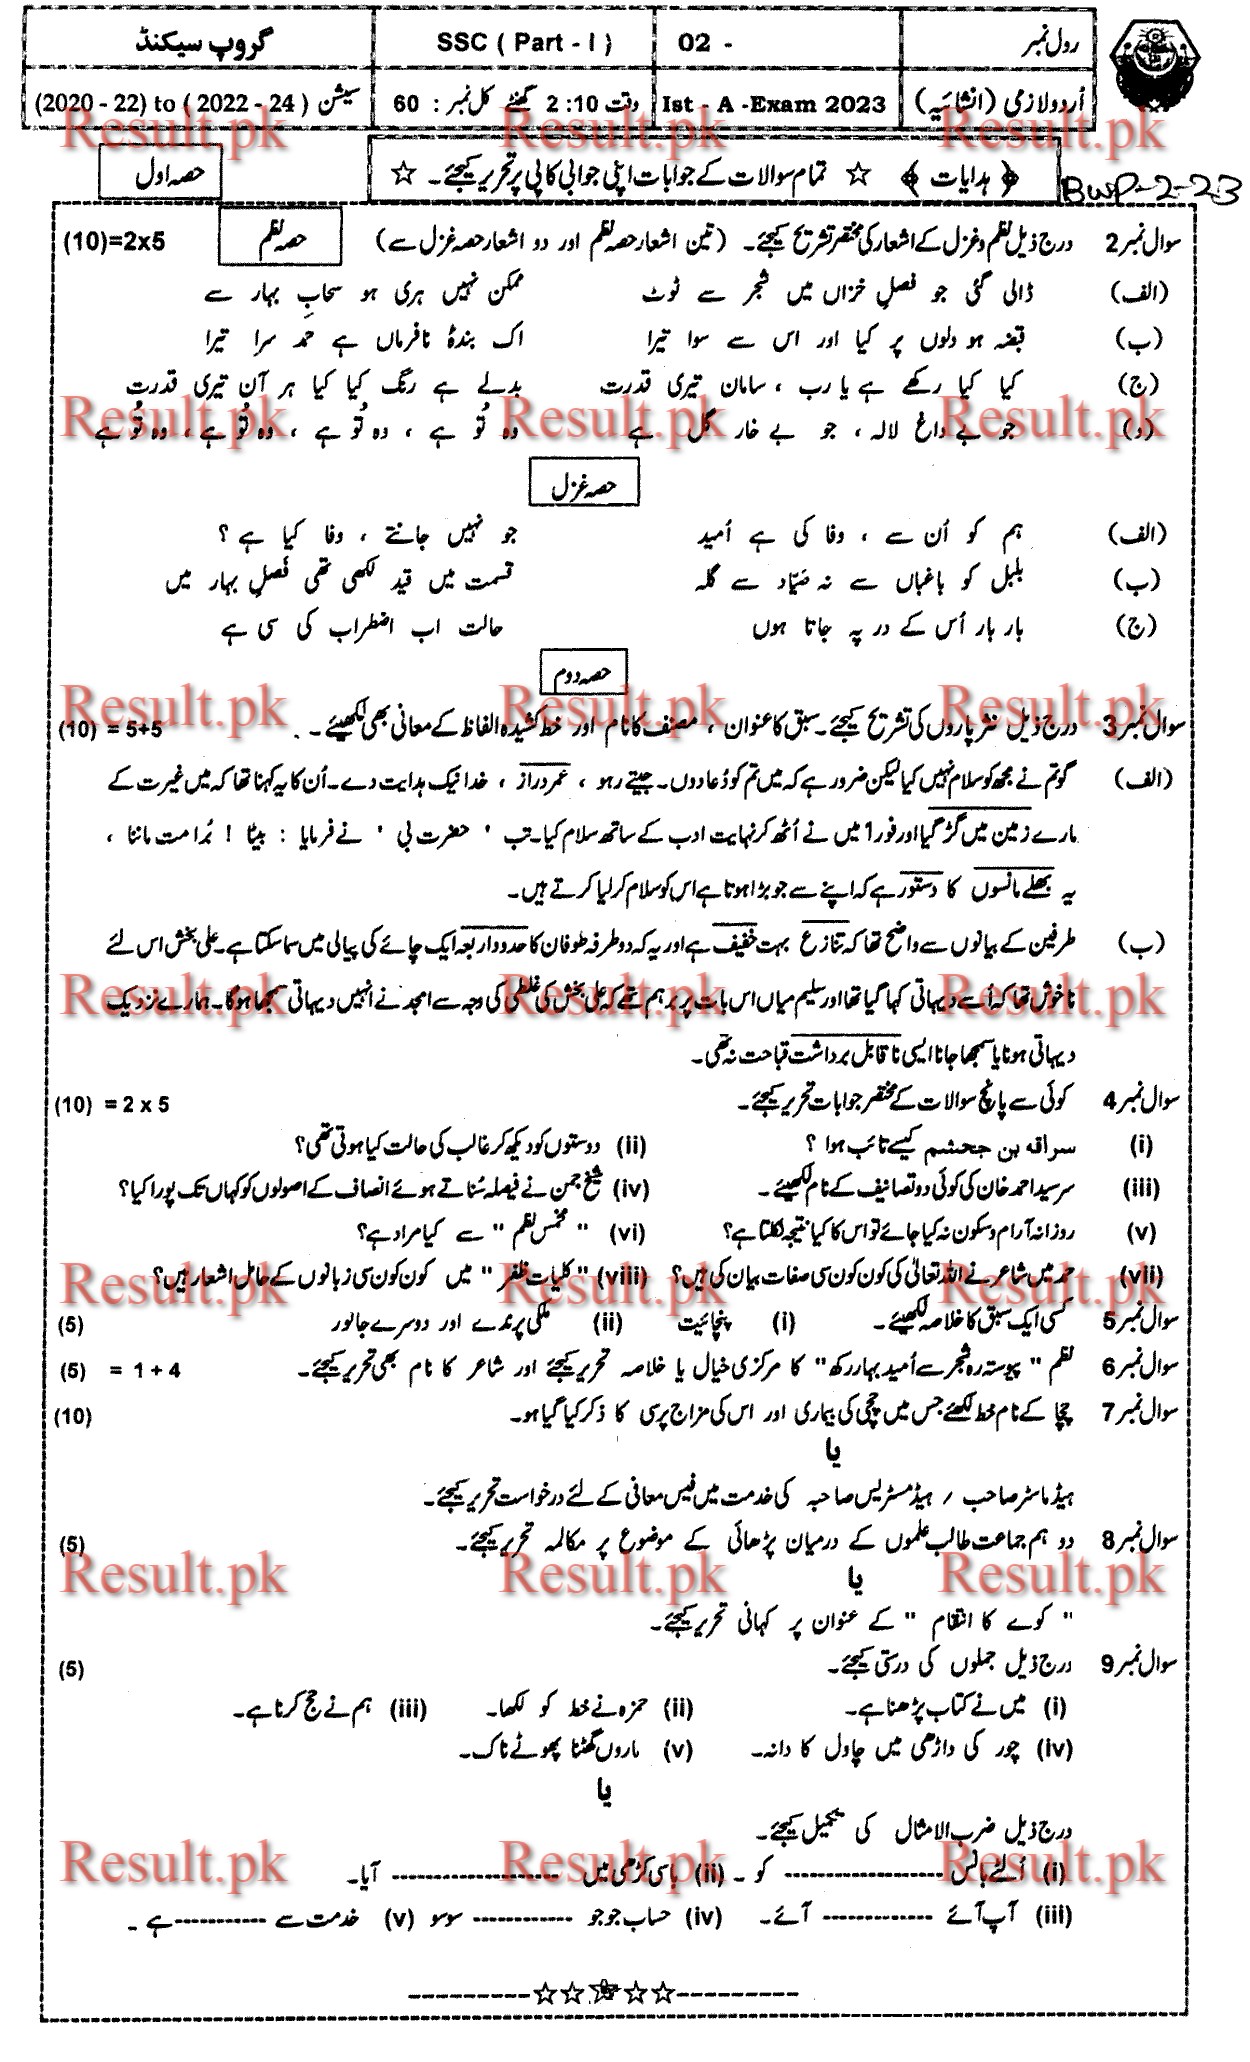 رول نمبر 02 - SSC ( Part - I ) گروپ سیکنڈ
اُردو لازمی (انشائیہ) Ist - A -Exam 2023 وقت 2:10 گھنٹے کل نمبر : 60 سیشن (2020 - 22) to ( 2022 - 24 )
﴿ ہدایات ﴾ ☆ تمام سوالات کے جوابات اپنی جوابی کاپی پر تحریر کیجئے۔ ☆ حصہ اول
BWP-2-23
سوال نمبر 2 درج ذیل نظم و غزل کے اشعار کی مختصر تشریح کیجئے۔ (تین اشعار حصہ نظم اور دو اشعار حصہ غزل سے) حصہ نظم (10)=2x5
(الف) ڈالی گئی جو فصلِ خزاں میں شجر سے ٹوٹ ممکن نہیں ہری ہو سحابِ بہار سے
(ب) قبضہ ہو دلوں پر کیا اور اس سے سوا تیرا اک بندۂ نافرماں ہے حمد سرا تیرا
(ج) کیا کیا رکھے ہے یا رب ، سامان تیری قدرت بدلے ہے رنگ کیا کیا ہر آن تیری قدرت
(د) جو بے داغ لالہ ، جو بے خار گل ہے وہ تُو ہے ، وہ تُو ہے ، وہ تُو ہے ، وہ تُو ہے
حصہ غزل
(الف) ہم کو اُن سے ، وفا کی ہے اُمید جو نہیں جانتے ، وفا کیا ہے ؟
(ب) بلبل کو باغباں سے نہ صَیّاد سے گلہ قسمت میں قید لکھی تھی فصلِ بہار میں
(ج) بار بار اُس کے در پہ جاتا ہوں حالت اب اضطراب کی سی ہے
حصہ دوم
سوال نمبر 3 درج ذیل نثر پاروں کی تشریح کیجئے۔ سبق کا عنوان ، مصنف کا نام اور خط کشیدہ الفاظ کے معانی بھی لکھیئے۔ (10) = 5+5
(الف) گو تم نے مجھ کو سلام نہیں کیا لیکن ضرور ہے کہ میں تم کو دُعا دوں۔ جیتے رہو ، عمر دراز ، خدا نیک ہدایت دے۔ اُن کا یہ کہنا تھا کہ میں غیرت کے
مارے زمین میں گڑ گیا اور فوراً میں نے اُٹھ کر نہایت ادب کے ساتھ سلام کیا۔ تب ' حضرت بی ' نے فرمایا : بیٹا ! بُرا مت ماننا ،
یہ بھلے مانسوں کا دستور ہے کہ اپنے سے جو بڑا ہوتا ہے اس کو سلام کر لیا کرتے ہیں۔
(ب) طرفین کے بیانوں سے واضح تھا کہ تنازع بہت خفیف ہے اور یہ کہ دو طرفہ طوفان کا حدود اربعہ ایک چائے کی پیالی میں سما سکتا ہے۔ علی بخش اس لئے
ناخوش تھا کہ اُسے دیہاتی کہا گیا تھا اور سلیم میاں اس بات پر برہم تھے کہ علی بخش کی غلطی کی وجہ سے امجد نے انہیں دیہاتی سمجھا ہوگا۔ ہمارے نزدیک
دیہاتی ہونا یا سمجھا جانا ایسی ناقابل برداشت قباحت نہ تھی۔
سوال نمبر 4 کوئی سے پانچ سوالات کے مختصر جوابات تحریر کیجئے۔ (10) = 2 x 5
(i) سراقہ بن جحشم کیسے تائب ہوا ؟ (ii) دوستوں کو دیکھ کر غالب کی حالت کیا ہوتی تھی؟
(iii) سرسید احمد خان کی کوئی دو تصانیف کے نام لکھیئے۔ (iv) شیخ جمن نے فیصلہ سُناتے ہوئے انصاف کے اصولوں کو کہاں تک پورا کیا؟
(v) روزانہ آرام و سکون نہ کیا جائے تو اس کا کیا نتیجہ نکلتا ہے؟ (vi) " مخمس نظم " سے کیا مراد ہے؟
(vii) حمد میں شاعر نے اللہ تعالیٰ کی کون کون سی صفات بیان کی ہیں؟ (viii) " کلیات ظفر " میں کون کون سی زبانوں کے حامل اشعار ہیں؟
سوال نمبر 5 کسی ایک سبق کا خلاصہ لکھیئے۔ (i) پنچائیت (ii) ملکی پرندے اور دوسرے جانور (5)
سوال نمبر 6 نظم " پیوستہ رہ شجر سے اُمید بہار رکھ " کا مرکزی خیال یا خلاصہ تحریر کیجئے اور شاعر کا نام بھی تحریر کیجئے۔ (5) = 1 + 4
سوال نمبر 7 چچا کے نام خط لکھئے جس میں چچی کی بیماری اور اس کی مزاج پرسی کا ذکر کیا گیا ہو۔ (10)
یا
ہیڈ ماسٹر صاحب / ہیڈ مسٹریس صاحبہ کی خدمت میں فیس معافی کے لئے درخواست تحریر کیجئے۔
سوال نمبر 8 دو ہم جماعت طالب علموں کے درمیان پڑھائی کے موضوع پر مکالمہ تحریر کیجئے۔ (5)
یا
" کوے کا انتقام " کے عنوان پر کہانی تحریر کیجئے۔
سوال نمبر 9 درج ذیل جملوں کی درستی کیجئے۔ (5)
(i) میں نے کتاب پڑھنا ہے۔ (ii) حمزہ نے خط کو لکھا۔ (iii) ہم نے حج کرنا ہے۔
(iv) چور کی داڑھی میں چاول کا دانہ۔ (v) ماروں گھٹنا پھوٹے ناک۔
یا
درج ذیل ضرب الامثال کی تکمیل کیجئے۔
(i) اُلٹے بانس ---------------- کو ۔ (ii) باسی کڑھی میں ---------------- آیا۔
(iii) آپ آئے ------------- آئے۔ (iv) حساب جو جو ---------- سو سو (v) خدمت سے ----------- ہے ۔
----------☆☆☆☆☆----------
Result.pk Result.pk Result.pk
Result.pk Result.pk Result.pk
Result.pk Result.pk Result.pk
Result.pk Result.pk Result.pk
Result.pk Result.pk Result.pk
Result.pk Result.pk Result.pk
Result.pk Result.pk Result.pk